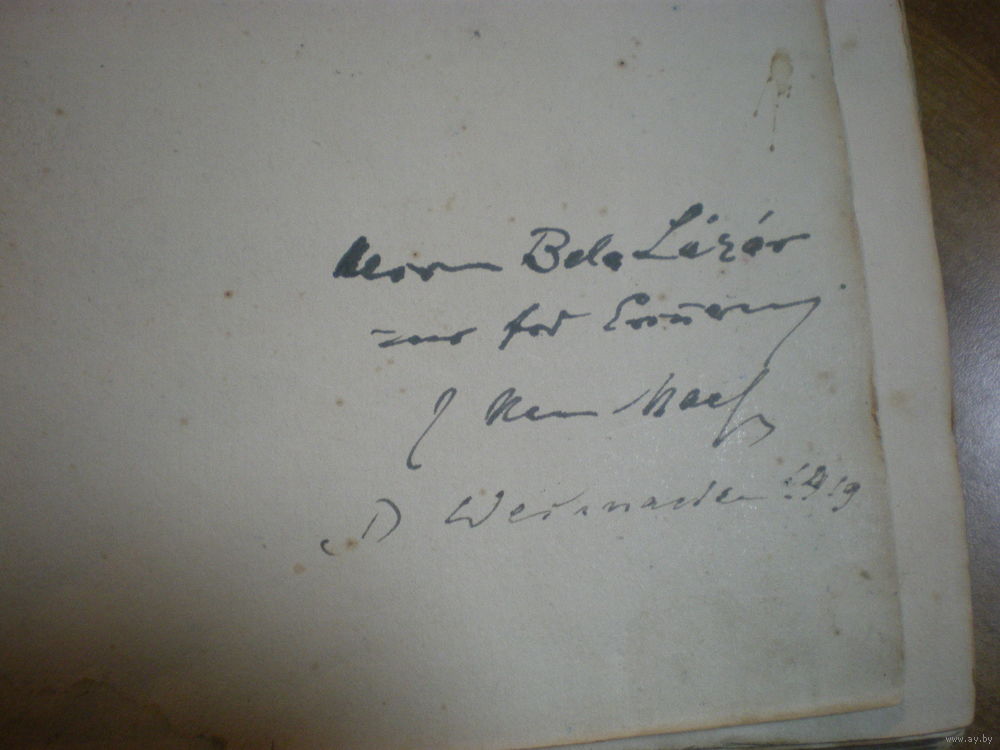 Herrn Bela Lázár
zur frd Erinnerung
J
D Weihnachten 1919
www.ay.by